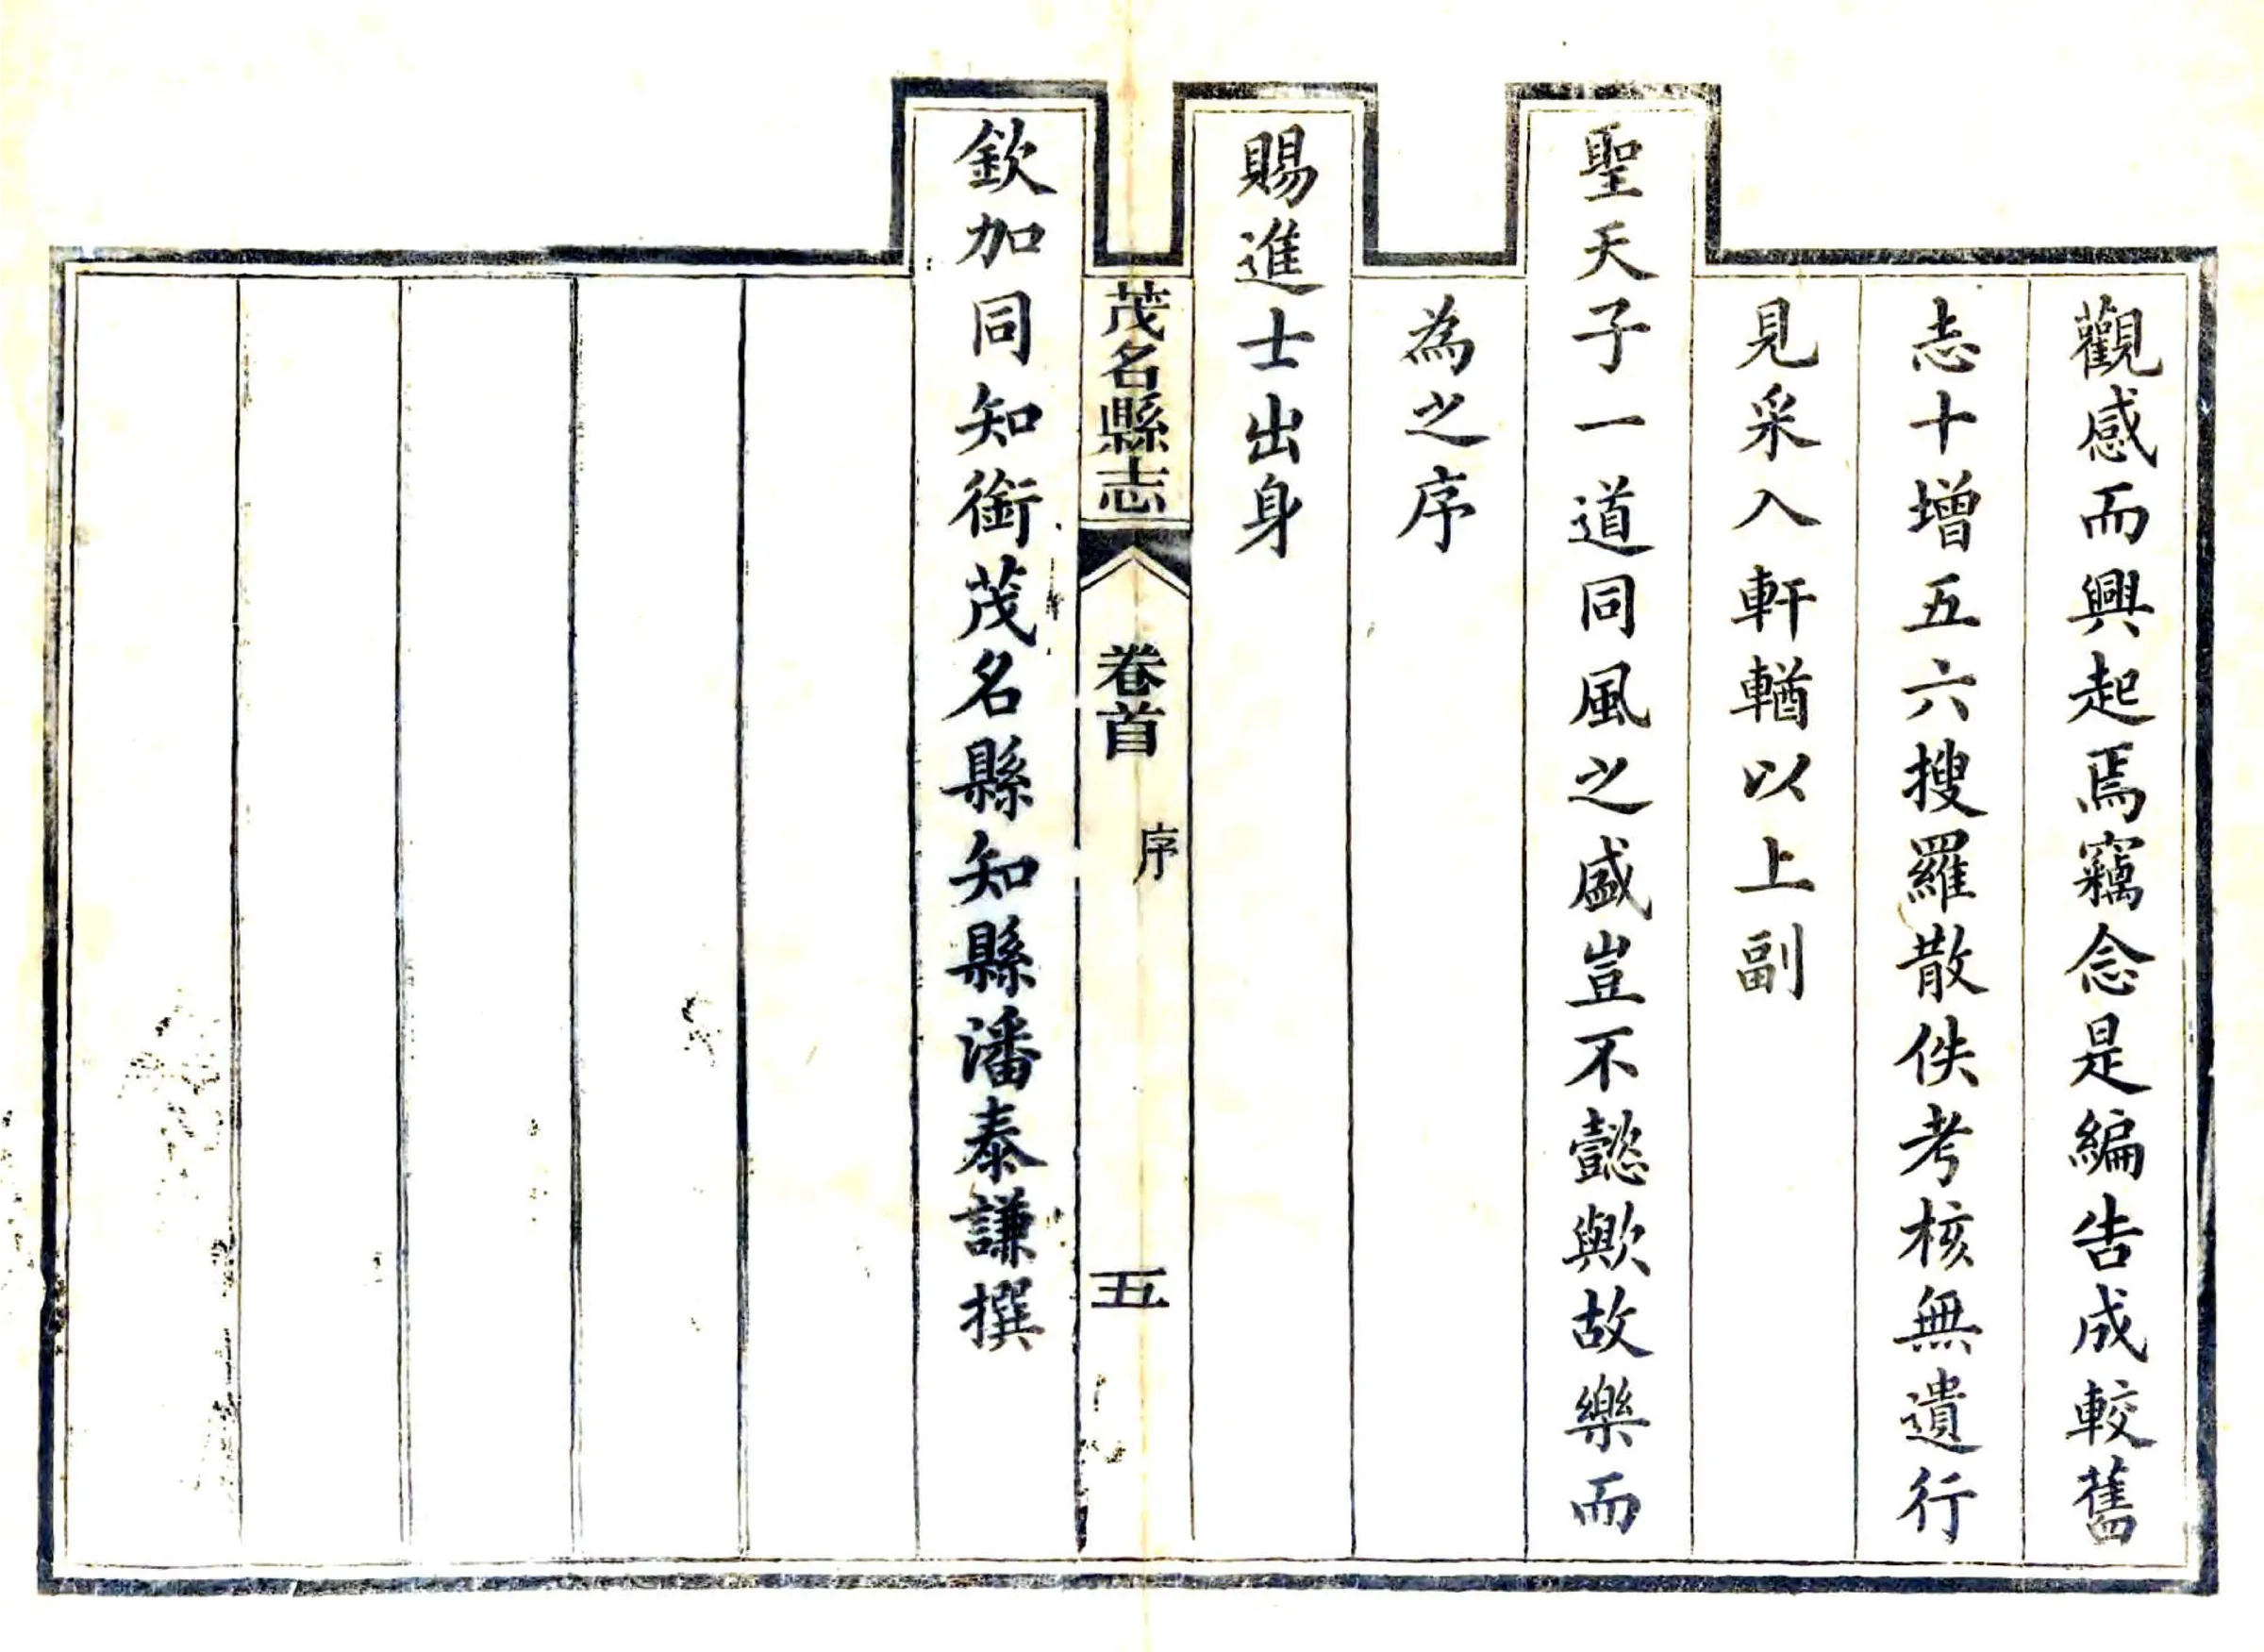 觀感而興起焉竊念是編告成較舊
志十增五六搜羅散佚考核無遺行
見采入軒輶以上副
聖天子一道同風之盛豈不懿歟故樂而
為之序
賜進士出身
茂名縣志
卷首
序
五
欽加同知銜茂名縣知縣潘泰謙撰